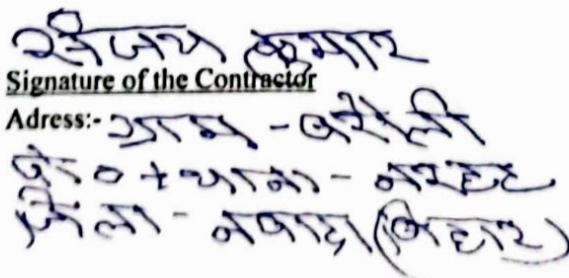 संजय कुमार
Signature of the Contractor
Adress:- ग्राम - बरौली
पो० + थाना - नरहट
जिला - नवादा (बिहार)